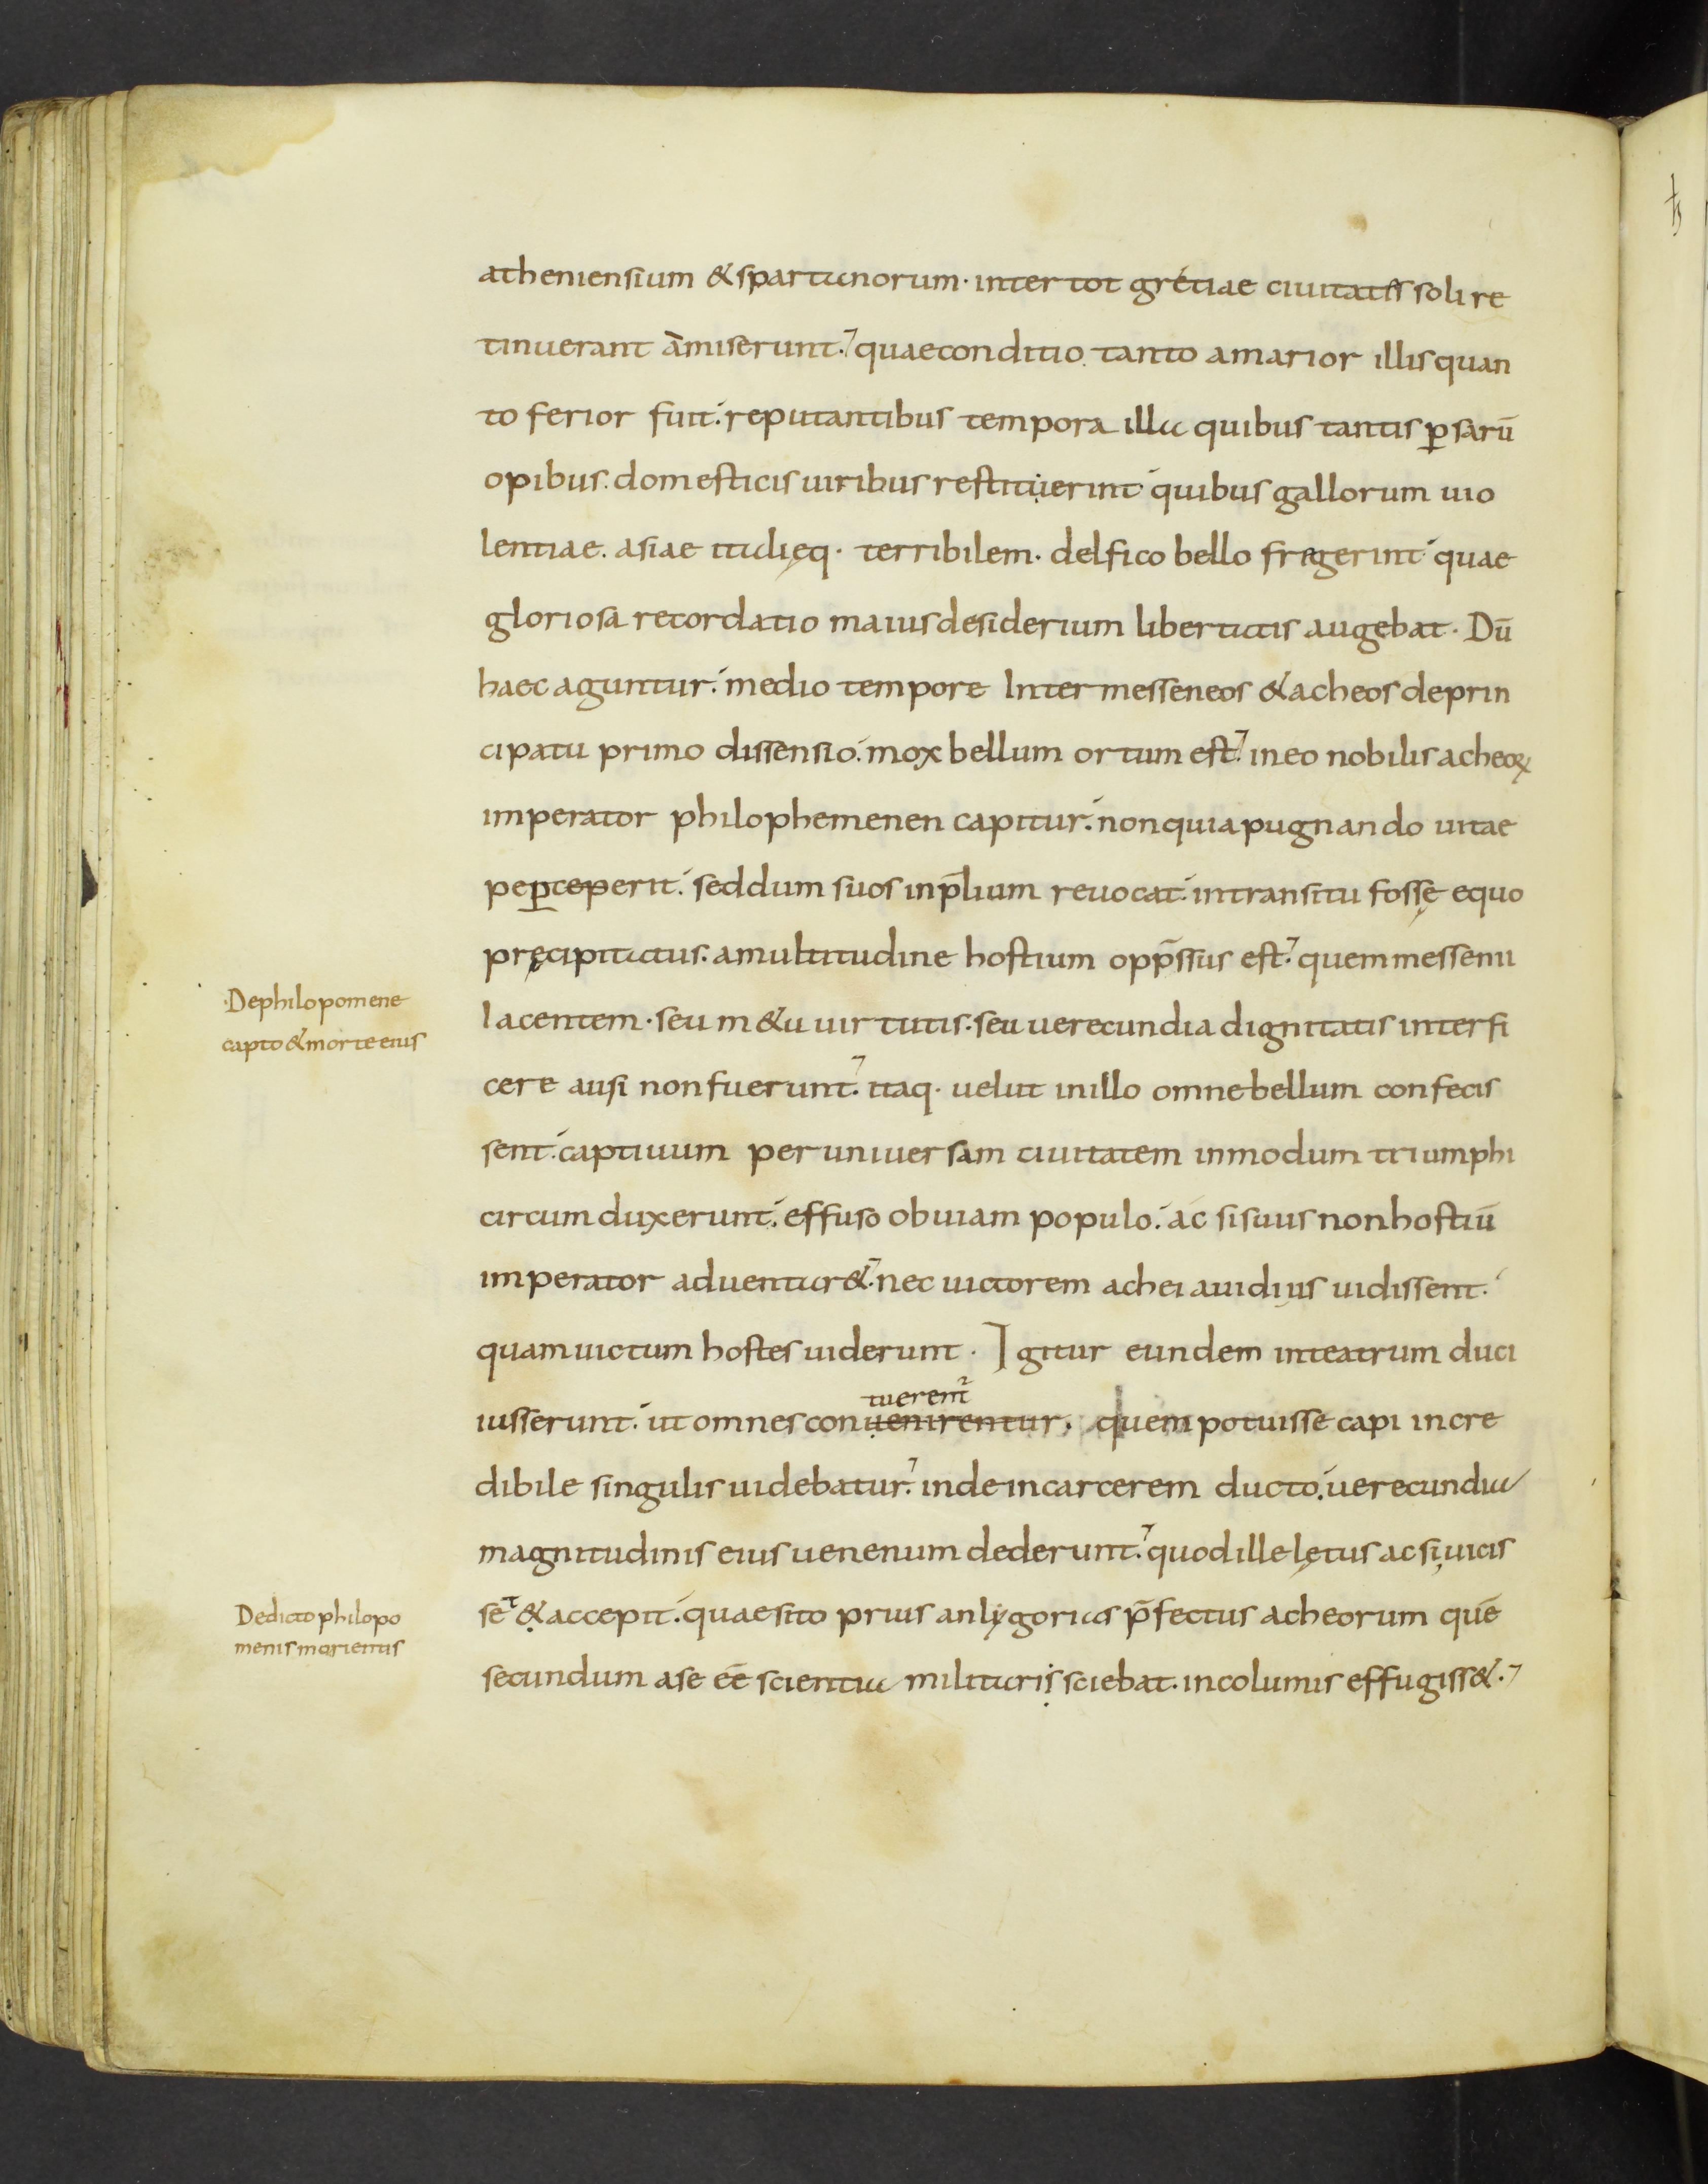 atheniensium & spartanorum· inter tot gretiae ciuitatis soli re
tinuerant amiserunt· quae conditio tanto amarior illis quan
to ferior fuit· reputantibus tempora illa quibus tantis ꝑsarū
opibus· domesticis uiribus restituerint quibus gallorum uio
lentiae· asiae italięq· terribilem· delfico bello fregerint quae
gloriosa recordatio maius desiderium libertatis augebat· Dū
haec aguntur· medio tempore Inter messeneos & acheos de prin
cipatu primo dissensio· mox bellum ortum est· in eo nobilis acheoꝝ
imperator philophemenen capitur· non quia pugnando uitae
peꝑceperit· sed dum suos in p̄lium reuocat· in transitu fossę equo
pręcipitatus· a multitudine hostium opp̄ssus est· quem messenii
Iacentem· seu m&u uirtutis· seu uerecundia dignitatis interfi
cere ausi non fuerunt· itaq· uelut in illo omne bellum confecis
sent· captiuum per uniuersam ciuitatem in modum triumphi
circumduxerunt· effuso obuiam populo· ac si suus non hostiū
imperator aduentar&· nec uictorem achei auidius uidissent·
quam uictum hostes uiderunt· Igitur eundem in teatrum duci
tuerent²
iusserunt· ut omnes conuenirentur· quem potuisse capi incre
dibile singulis uidebatur· inde in carcerem ducto· uerecundia
magnitudinis eius uenenum dederunt· quod ille lętus ac si uicis
set & accepit· quaesito prius an lygorias p̄fectus acheorum quē
secundum a se eē scientia militaris sciebat· incolumis effugiss&·
Dephilopomene
capto & morte eius
Dedicto philopo
menis morientis